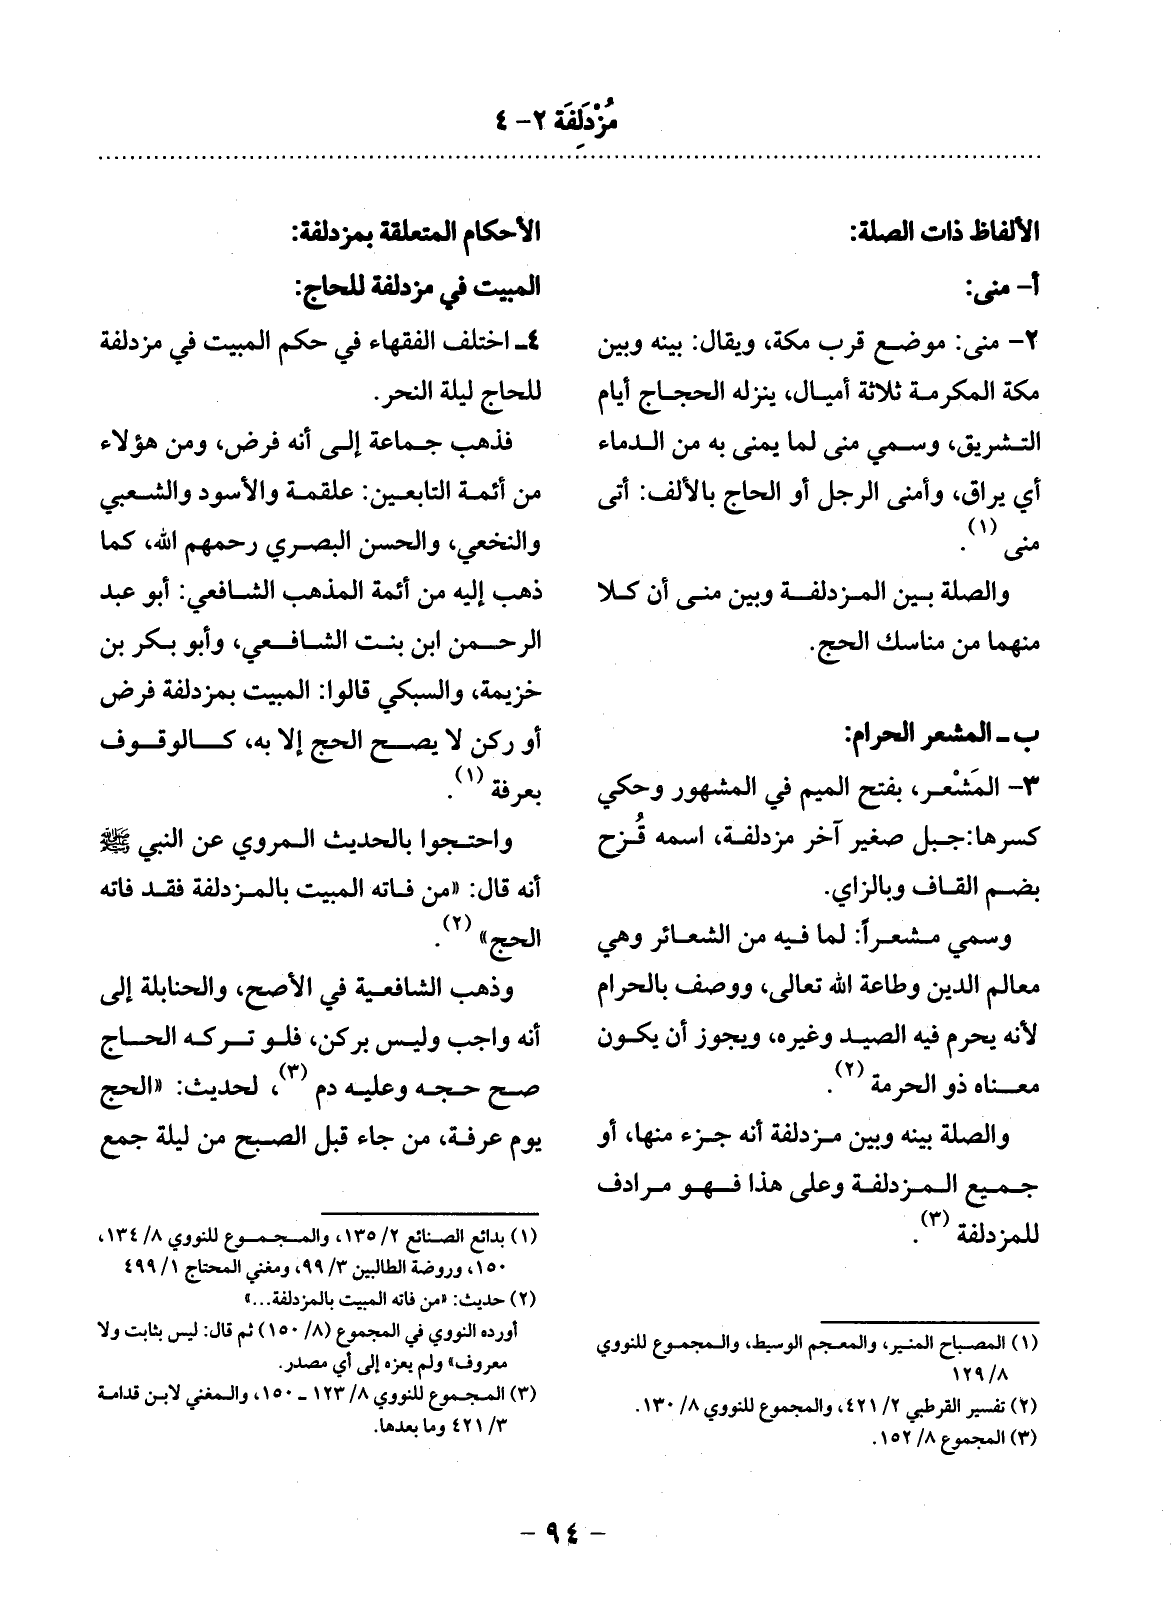 مُزْدَلِفَة ٢ – ٤
الألفاظ ذات الصلة:
أ– منى:
٢– منى: موضع قرب مكة، ويقال: بينه وبين
مكة المكرمة ثلاثة أميال، ينزله الحجاج أيام
التشريق، وسمي منى لما يمنى به من الدماء
أي يراق، وأمنى الرجل أو الحاج بالألف: أتى
منى (١).
والصلة بين المزدلفة وبين منى أن كلا
منهما من مناسك الحج.
ب ـ المشعر الحرام:
٣– المَشْعر، بفتح الميم في المشهور وحكي
كسرها:جبل صغير آخر مزدلفة، اسمه قُزح
بضم القاف وبالزاي.
وسمي مشعراً: لما فيه من الشعائر وهي
معالم الدين وطاعة الله تعالى، ووصف بالحرام
لأنه يحرم فيه الصيد وغيره، ويجوز أن يكون
معناه ذو الحرمة (٢).
والصلة بينه وبين مزدلفة أنه جزء منها، أو
جميع المزدلفة وعلى هذا فهو مرادف
للمزدلفة (٣).
(١) المصباح المنير، والمعجم الوسيط، والمجموع للنووي
٨/ ١٢٩
(٢) تفسير القرطبي ٢/ ٤٢١، والمجموع للنووي ٨/ ١٣٠.
(٣) المجموع ٨/ ١٥٢.
الأحكام المتعلقة بمزدلفة:
المبيت في مزدلفة للحاج:
٤ـ اختلف الفقهاء في حكم المبيت في مزدلفة
للحاج ليلة النحر.
فذهب جماعة إلى أنه فرض، ومن هؤلاء
من أئمة التابعين: علقمة والأسود والشعبي
والنخعي، والحسن البصري رحمهم الله، كما
ذهب إليه من أئمة المذهب الشافعي: أبو عبد
الرحمن ابن بنت الشافعي، وأبو بكر بن
خزيمة، والسبكي قالوا: المبيت بمزدلفة فرض
أو ركن لا يصح الحج إلا به، كالوقوف
بعرفة (١).
واحتجوا بالحديث المروي عن النبي ﷺ
أنه قال: «من فاته المبيت بالمزدلفة فقد فاته
الحج» (٢).
وذهب الشافعية في الأصح، والحنابلة إلى
أنه واجب وليس بركن، فلو تركه الحاج
صح حجه وعليه دم (٣)، لحديث: «الحج
يوم عرفة، من جاء قبل الصبح من ليلة جمع
(١) بدائع الصنائع ٢/ ١٣٥، والمجموع للنووي ٨/ ١٣٤،
١٥٠، وروضة الطالبين ٣/ ٩٩، ومغني المحتاج ١/ ٤٩٩
(٢) حديث: «من فاته المبيت بالمزدلفة...»
أورده النووي في المجموع (٨/ ١٥٠) ثم قال: ليس بثابت ولا
معروف» ولم يعزه إلى أي مصدر.
(٣) المجموع للنووي ٨/ ١٢٣ ـ ١٥٠، والمغني لابن قدامة
٣/ ٤٢١ وما بعدها.
– ٩٤ –